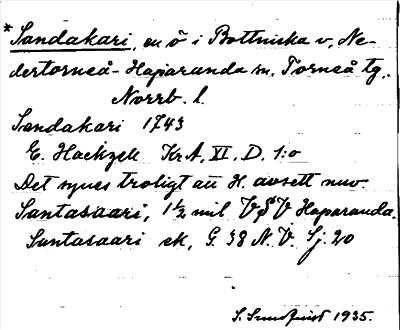 *Sandakari, en ö i Bottniska v, Ne-
dertorneå-Haparanda sn. Torneå tg,
Norrb. l.
Sandakari 1743
E. Hackzell KrA, XI. D. 1:o
Det synes troligt att H. avsett nuv.
Santasaari, 1½ mil VSV Haparanda.
Santasaari ek, G. 38 N. V. Sj. 20
S. Sundquist 1935.